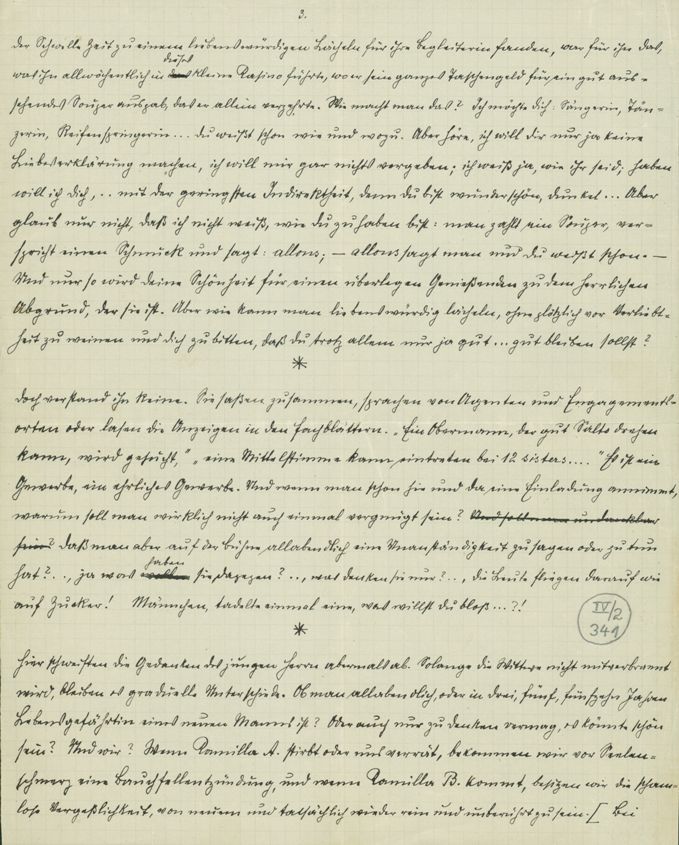 3.
der Schwelle Zeit zu einem liebenswürdigen Lächeln für ihre Begleiterin fanden, war für ihn das,
was ihn allwöchentlich in dieses kleine Kasino führte, wo er sein ganzes Taschengeld für ein gut aus-
sehendes Souper ausgab, das er allein verzehrte. Wie macht man das? Ich möchte dich: Sängerin, Tän-
zerin, Reifenspringerin ... du weißt schon wie und wozu. Aber höre, ich will dir nur ja keine
Liebeserklärung machen, ich will mir gar nichts vergeben; ich weiß ja, wie ihr seid; haben
will ich dich, .. mit der geringsten Indirektheit, denn du bist wunderschön, dunkel ... Aber
glaub nur nicht, daß ich nicht weiß, wie du zu haben bist: man zahlt ein Souper, ver-
spricht einen Schmuck und sagt: allons; – allons sagt man und du weißt schon. –
Und nur so wird deine Schönheit für einen überlegen Genießenden zu dem herrlichen
Abgrund, der sie ist. Aber wie kann man liebenswürdig lächeln, ohne plötzlich vor Verliebt-
heit zu weinen und dich zu bitten, daß du trotz allem nur ja gut ... gut bleiben sollst?
*
Doch verstand ihn keine. Sie saßen zusammen, sprachen von Agenten und Engagements-
orten oder lasen die Anzeigen in den Fachblättern. „Ein Obermann, der gut Salto drehen
kann, wird gesucht," „eine Mittelstimme kann eintreten bei 12 sisters...." Es ist ein
Gewerbe, ein ehrliches Gewerbe. Und wenn man schon hie und da eine Einladung annimmt,
warum soll man wirklich nicht auch einmal vergnügt sein? Und soll man undankbar
sein? Daß man aber auf der Bühne allabendlich eine Unanständigkeit zu sagen oder zu tun
hat? .., ja was haben sie dagegen? .., was denken sie nur? .., die Leute fliegen darauf wie
auf Zucker! Männchen, tadelte einmal eine, was willst du bloß ...?!
IV/2
341
*
Hier schweiften die Gedanken des jungen Herrn abermals ab. Solange die Witwe nicht mitverbrannt
wird, bleiben es graduelle Unterschiede. Ob man allabendlich, oder in drei, fünf, fünfzehn Jahren
Lebensgefährtin eines neuen Manns ist? Oder auch nur zu denken vermag, es könnte schön
sein? Und wir? Wenn Kamilla A. stirbt oder uns verrät, bekommen wir vor Seelen-
schmerz eine Bauchfellentzündung, und wenn Kamilla B. kommt, besitzen wir die scham-
lose Vergeßlichkeit, von neuem und tatsächlich wieder rein und unberührt zu sein. [ Bei